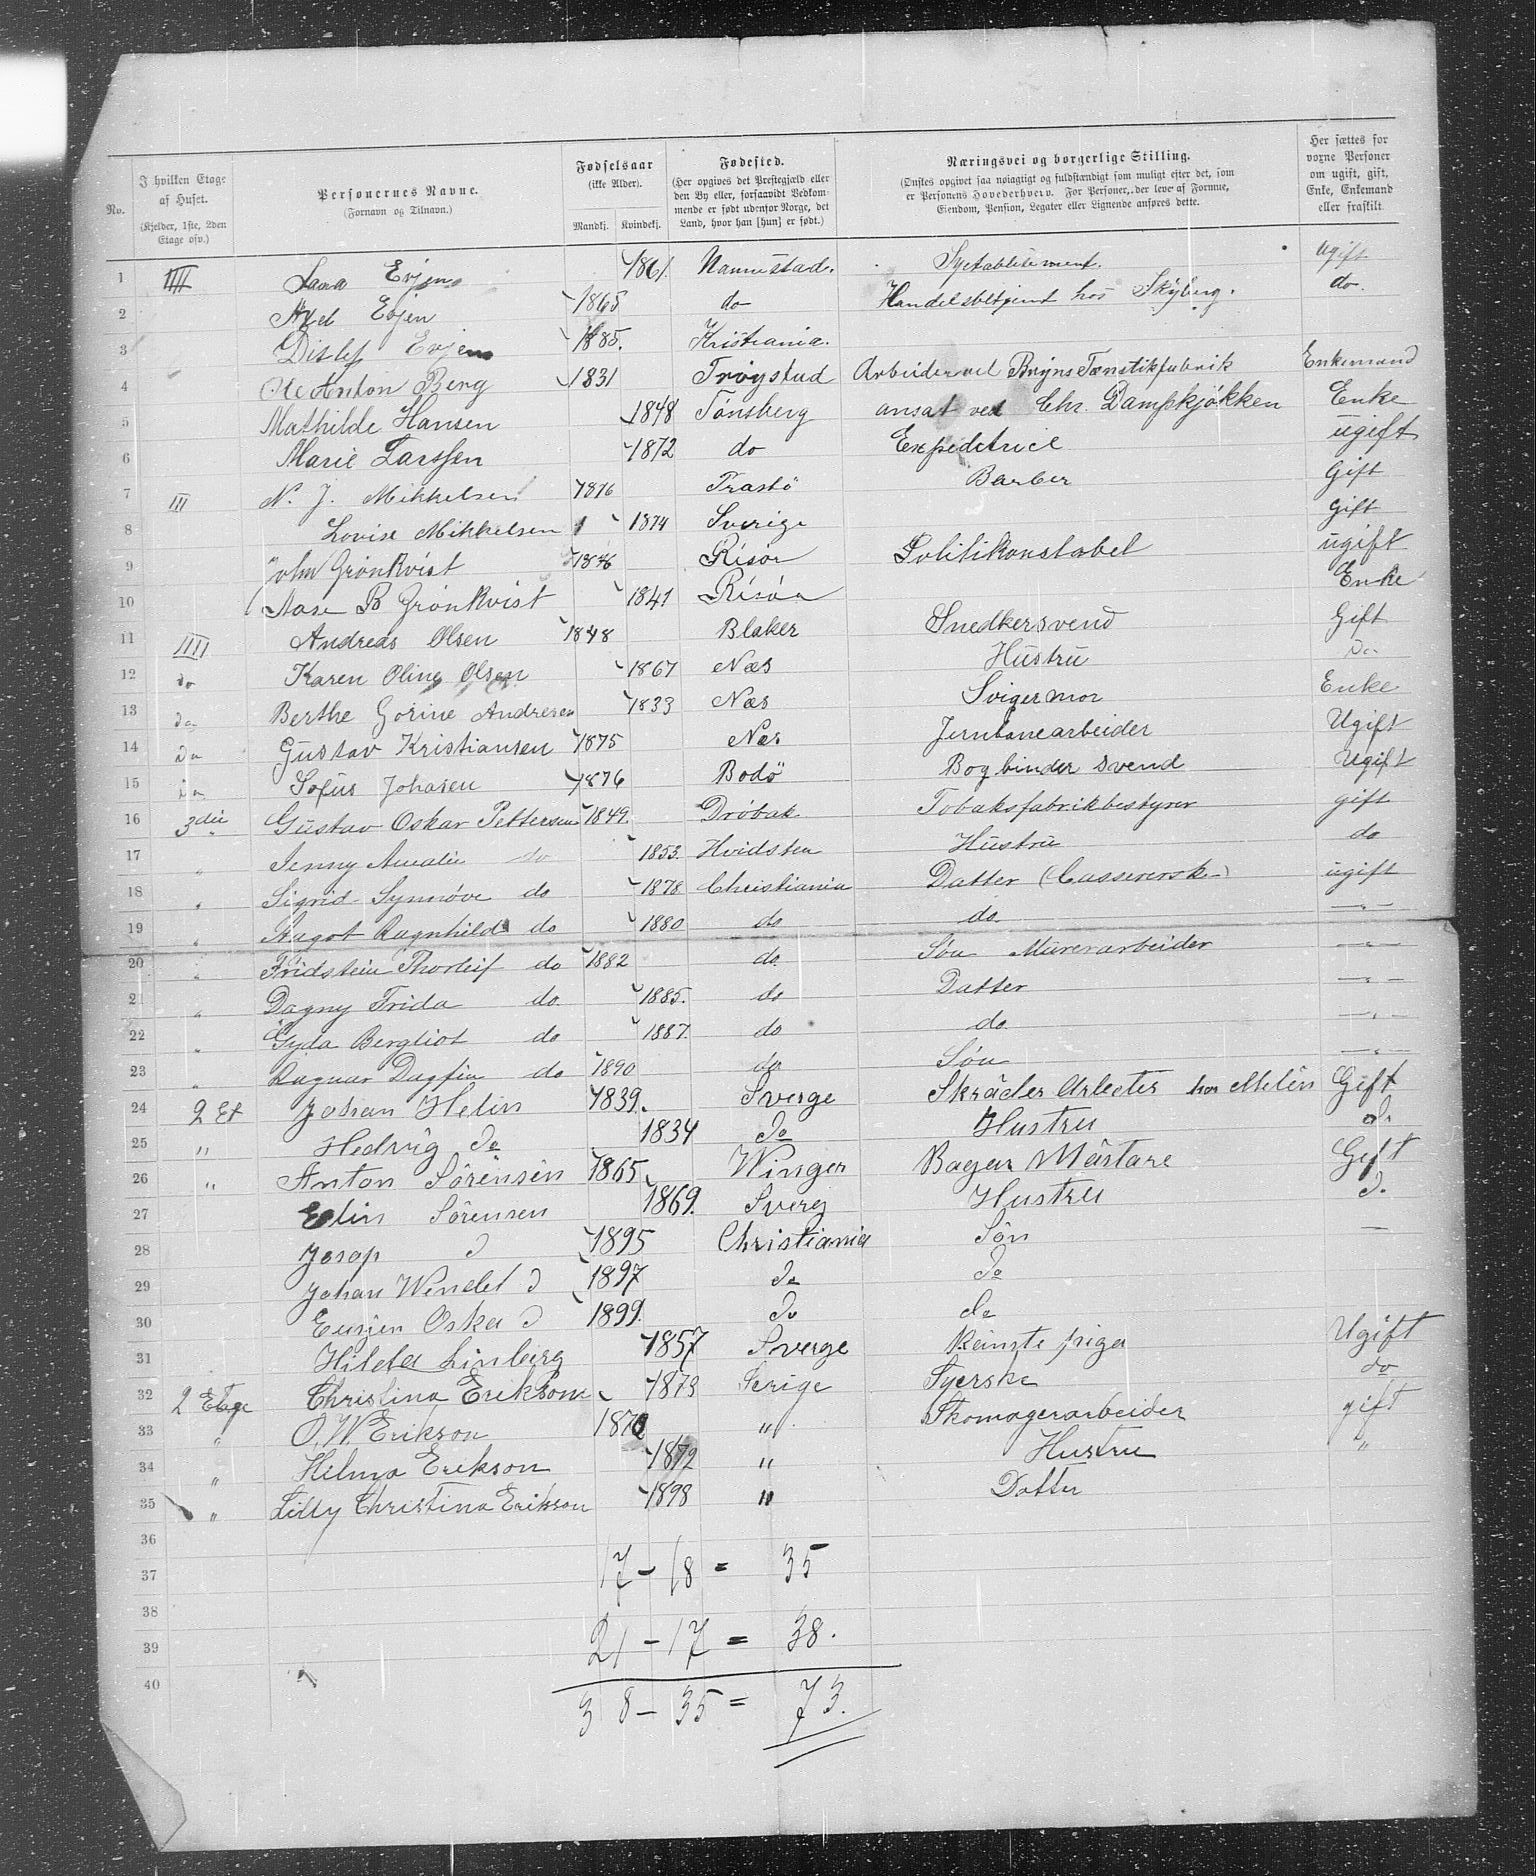 No. | I hvilken Etage af Huset. (Kjelder, 1ste, 2den Etage osv.) | Personernes Navne. (Fornavn og Tilnavn.) | Fødselsaar (ikke Alder). Mandkj. Kvindekj. | Fødested. (Her opgives det Prestegjæld eller den By eller, forsaavidt Vedkommende er født udenfor Norge, det Land, hvor han [hun] er født.) | Næringsvei og borgerlige Stilling. (Ønskes opgivet saa nøiagtigt og fuldstændigt som muligt efter det, som er Personens Hovederhverv. For Personer, der leve af Formue, Eiendom, Pension, Legater eller Lignende anføres dette. | Her sættes for voxne Personer om ugift, gift, Enke, Enkemand eller fraskilt.
1 IIII Evjen 1861 Nannestad. Syetablisement. Ugift
2 Axel Evjen 1865 do Handelsbetjent hos Skyberg. do.
3 Ditlef Evjen 1885. Kristiania.
4 Ole Anton Berg 1831 Trøgstad Arbeider ved Bryns Tænstikfabrik Enkemand
5 Mathilde Hansen 1848 Tønsberg ansat ved Chr. Dampkjøkken Enke
6 Marie Larssen 1872 do Expeditrice ugift
7 III N. J. Mikkelsen 1876 Barber Gift
8 Lovise Mikkelsen 1874 Sverige Gift
9 John Grönkvist 1876 Risør Politikonstabel ugift
10 Aase B Grönkvist 1841 Risør Enke
11 IIII Andreas Olsen 1848 Blaker Snedkersvend Gift
12 do Karen Oline Olsen 1867 Næs Hustru Do
13 do Berthe Gorine Andresen 1833 Næs Svigermor Enke
14 do Gustav Kristiansen 1875 Næs Jernbanearbeider Ugift
15 do Sofus Johasen 1876 Bodø Bogbinder svend Ugift
16 3die Gustav Oskar Pettersen 1849. Drøbak Tobaksfabrikbestyrer gift
17 " Jenny Amalie do 1853. Hvidsten Hustru do
18 " Sigrid Synnöve do 1878 Christiania Datter ugift
19 " Aagot Ragnhild do 1880 do do. — " —
20 " Fridstein Thorleif do 1882 do Søn Murerarbeider — " —
21 " Dagny Frida do 1885. do Datter — " —
22 " Gyda Bergliot do 1887. do do — " —
23 " Ragnar Dagfin do 1890 do Søn — " —
24 2 Et Johan Helin 1839. Sverge Skräder Arbeter hos Melin Gift
25 " Hedvig do 1834 do Hustru d.
26 " Anton Sörensen 1865 Winger Bagar Mästare Gift
27 Elin Sörensen 1869. Sverg Hustru d.
28 Josop d 1895 Christiania Sön —
29 Johan Wendel d 1897 do do
30 Eugen Oska d 1899. do do
31 Hilda Linberg 1857 Sverge piga Ugift
32 2 Etage Christina Erikson 1873 Serige Syerske do
33 " O. W. Erikson " Skomagerarbeider gift
34 " Hilma Erikson 1872 " Hustru "
35 " Lilly Christina Erikson 1898 " Datter
36
37 17 - 18 = 35
38
39 21 - 17 = 38.
40 38 - 35 = 73.